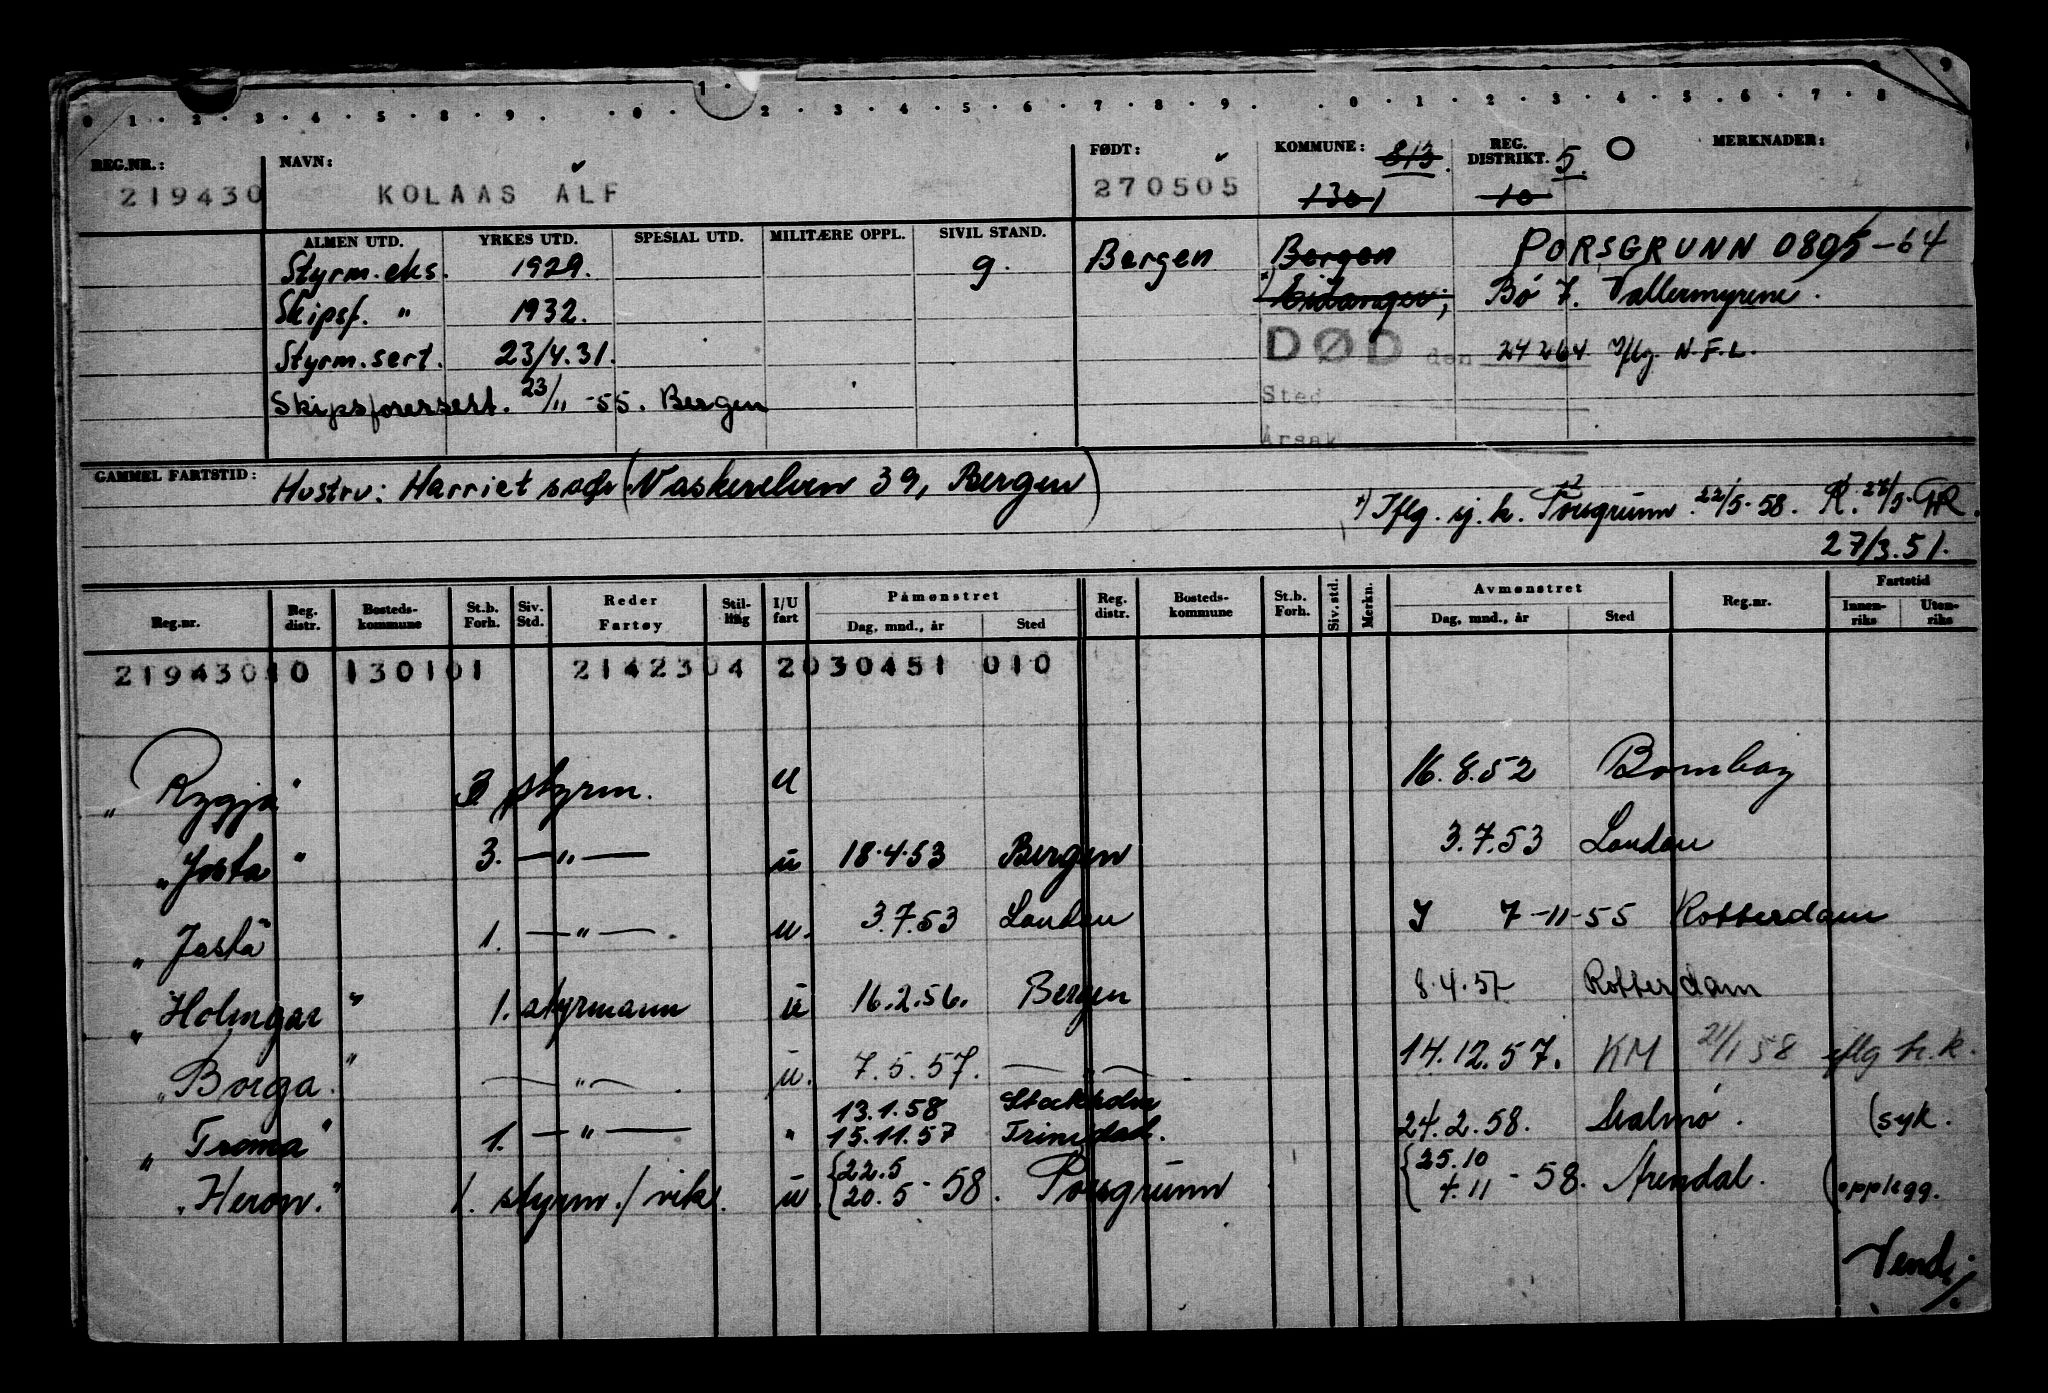 0 1 · 2 · 3 · 4 · 5 · 8 · 9 · · 0 · 1 · 2 · 3 · 4 · 5 · 6 · 7 · 8 · 9 · · 0 · 1 · 2 · 3 · 4 · 5 · 6 · 7 · 8 9
REG.NR.: NAVN: FØDT: KOMMUNE: 813 REG. DISTRIKT. 5 O MERKNADER:
219430 KOLAAS ALF 270505 1301 10
ALMEN UTD. YRKES UTD. SPESIAL UTD. MILITÆRE OPPL. SIVIL STAND.
Styrm.eks. 1929. g. Bergen Bergen PORSGRUNN 0805-64
Skipsf. " 1932. Eidanger; Bø 7. Vallermyrene.
Styrm.sert. 23/4.31. DØD den 24 2 64 Iflg. N.F.L.
Skipsførersert. 23/11-55. Bergen Sted
Årsak
GAMMEL FARTSTID: Hustru: Harriet sads (Vaskerelven 39, Bergen)
x) Iflg. sj. k. Porsgrunn 22/5-58. R. 28/5. GR.
27/3.51.
Reg.nr. Reg. distr. Bosteds-kommune St.b. Forh. Siv. Std. Reder Fartøy Stil-ling I/U fart Påmønstret Dag, mnd., år Sted Reg. distr. Bosteds-kommune St.b. Forh. Siv.std. Merkn. Avmønstret Dag, mnd., år Sted Reg.nr. Fartstid Innen-riks Uten-riks
21943010 130101 2142304 2030451 010
" Rygja " 3 styrm. U 16.8.52 Bombay
" Josta " 3. —"— u 18.4.53 Bergen 3.7.53 London
" Josta " 1. —"—. u. 3.7.53 London 7-11-55 Rotterdam
" Holmgar " 1. styrmann u 16.2.56. Bergen 8.4.57 Rotterdam
" Borga. " —"—. u. 7.5.57. —"—. 14.12.57. KM 21/1 58 iflg h.k.
13.1.58 Stockholm
" Troma " 1. —"— " 15.11.57 Trinidad. 24.2.58. Malmø. (syk.
" Heron. " 1. styrm./vik. u. {22.5 20.5 -58. Porsgrunn {25.10 4.11 -58. Arendal. (opplegg.
Vend./.